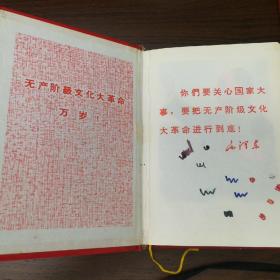 无产阶级文化大革命
万岁
你們要关心国家大
事，要把无产阶级文化
大革命进行到底！
毛泽东